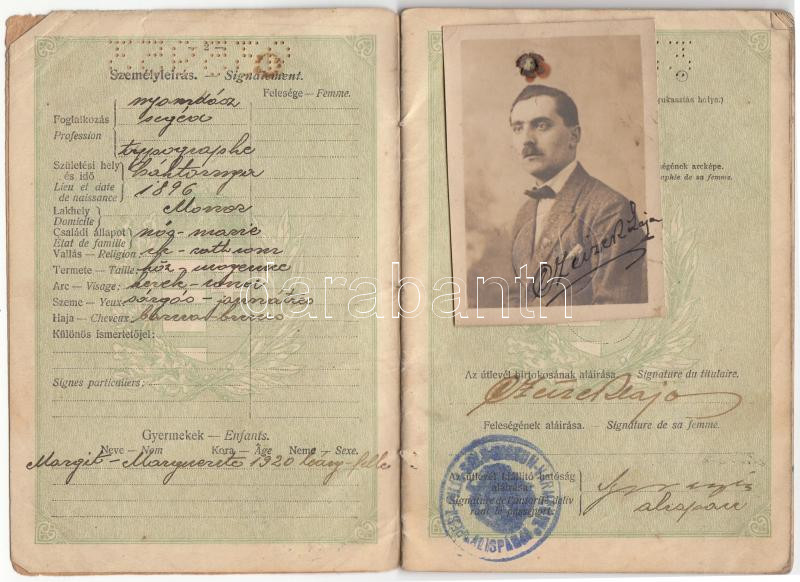 Személyleírás. — Signalement.
Felesége — Femme.
nyomdász
Foglalkozás segéd
Profession
typographe
Születési hely
és idő
Lieu et date
de naissance 1896
Lakhely Monor
Domicile
Családi állapot nős - marié
État de famille
Vallás — Religion: rk - cath rom
Termete — Taille: köz. - moyenne
Arc — Visage: kerek - rond
Szeme — Yeux: sárgás - jaunâtres
Haja — Cheveux: barna - bruns
Különös ismertetőjel:
Signes particuliers:
Gyermekek — Enfants.
Neve — Nom Kora — Âge Neme — Sexe.
Margit - Marguerite 1920 leány - fille
lyukasztás helye.)
ségének arcképe.
aphie de sa femme.
Czeizek Laja
Az útlevél birtokosának aláírása. — Signature du titulaire.
Czeizek Lajo
Feleségének aláírása. — Signature de sa femme.
Az útlevelet kiállító hatóság
aláírása:
Signature de l'autorité déliv-
rant le passeport:
alispán
ALISPÁNJA
darabanth